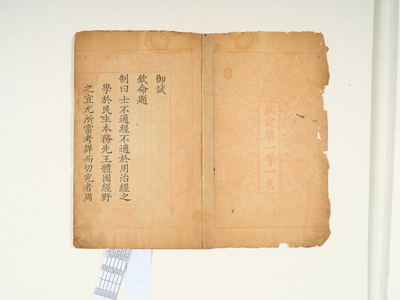 欽定第一等一名
御試
欽命題
制曰士不通經不適於用治經之
學於民生本務先王體國經野
之宜尤所當考詳而切究者周